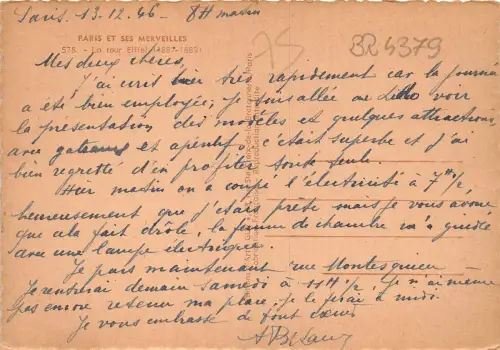 Paris. 13.12.46 - 8H matin
PARIS ET SES MERVEILLES
578. - La tour Eiffel (1887-1889)
75
BR4379
Mes deux chères,
J'ai écrit hier très rapidement car la journée
a été bien employée; je suis allée au Lido voir
la présentation des modèles et quelques attractions
avec gateaux et apéritif, c'était superbe et j'ai
bien regretté d'en profiter toute seule.
Hier matin on a coupé l'électricité à 7h 1/2,
heureusement que j'étais prête mais je vous avoue
que cela fait drôle, la femme de chambre m'a guidée
avec une lampe électrique.
Je pars maintenant rue Montesquieu
Je rentrerai demain samedi à 11H 1/2, je n'ai même
pas encore retenu ma place, je le ferai à midi.
Je vous embrasse de tout coeur